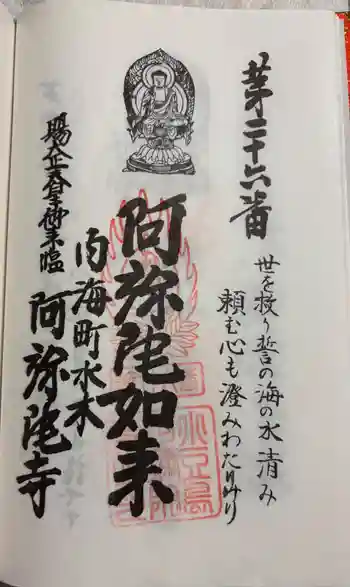 第二十六番
世を救う誓の海の水清み
頼む心も澄みわたりけり
阿弥陀如来
内海町水木
阿弥陀寺